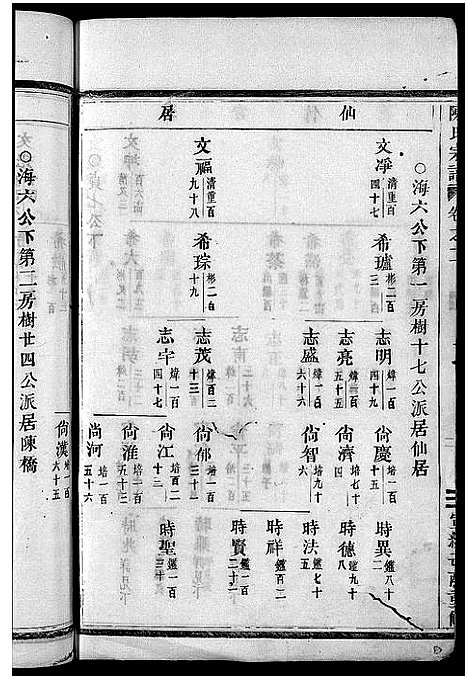 仙居
○海六公下第一房樹十七公派居仙居
文凈 清重百四十七
文福 清重百九十八
希瓐 彬二百三
希琮 彬二百十九
志明 煒一百四十
志亮 煒一百五十五
志盛 煒一百六十六
志茂 煒百二十三
志宇 煒一百四十七
尚慶 培二十
尚濟 培一百四
尚智 培九十六
尚郁 培一百三十一
尚江 培二百十三
尚淮 培一百五十三
尚河 培一百五十六
尚漢 培一百六十五
時異 鑑八十二
時德 鑑九十八
時法 鑑七十五
時祥 鑑百二
時賢 鑑一百二十二
時聖 鑑一百三十
○海六公下第二房樹廿四公派居陳橋